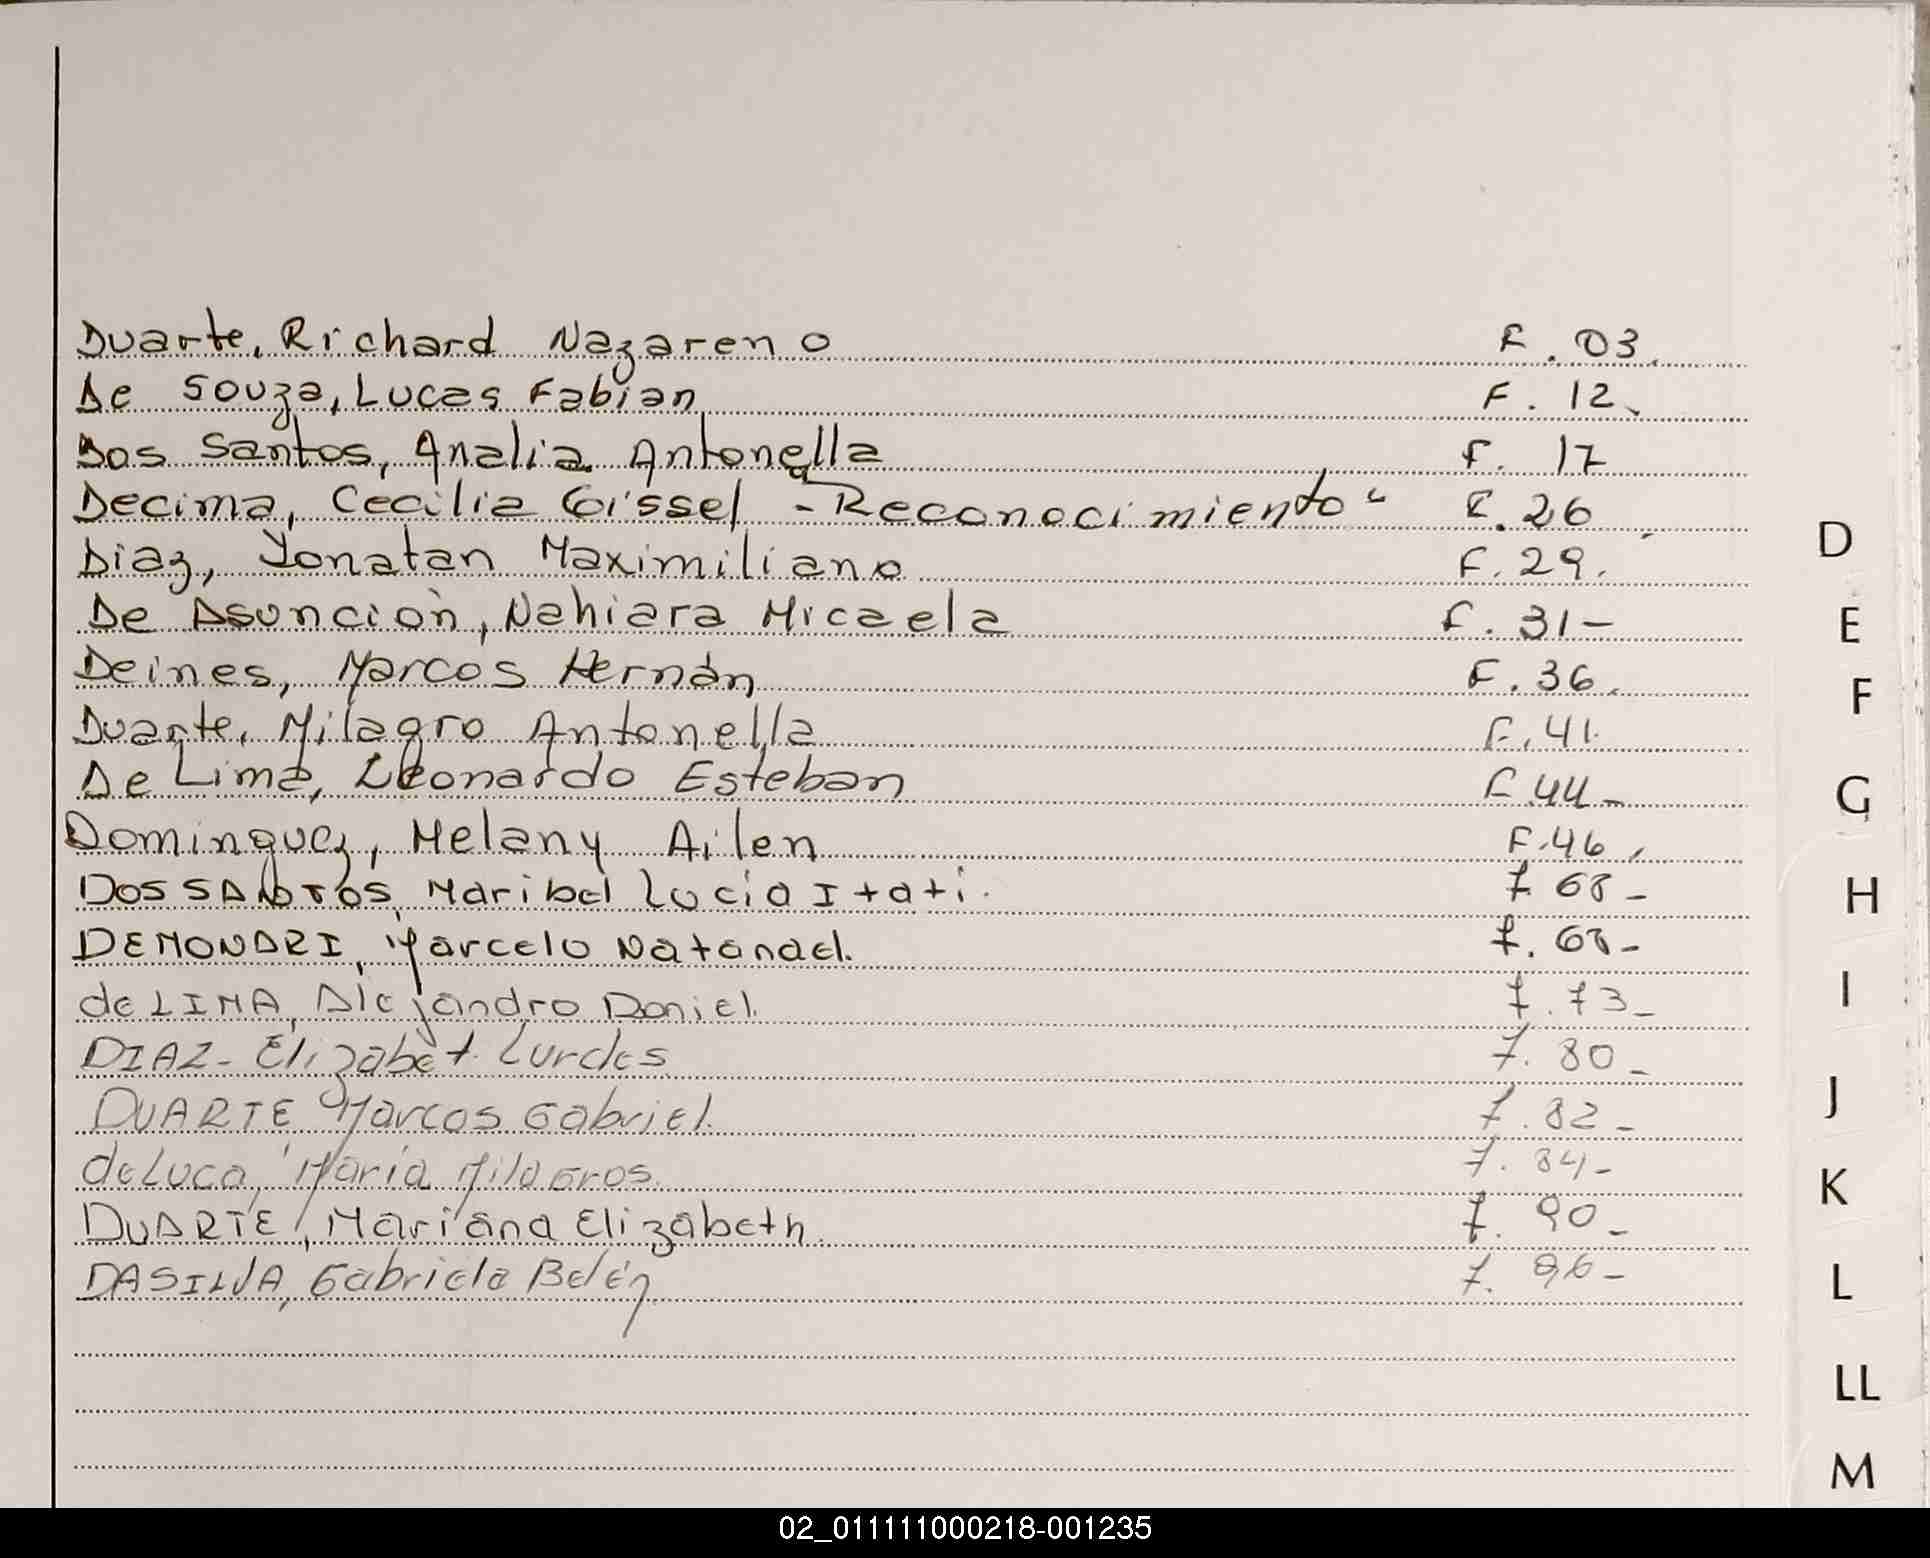 Duarte, Richard Nazareno F. 03.
De Souza, Lucas Fabian F. 12.
Dos Santos, Analia Antonella F. 17
Decima, Cecilia Gissel - Reconocimiento " F. 26
Diaz, Yonatan Maximiliano F. 29.
De Asunción, Nahiara Micaela F. 31-
Deines, Marcos Hernán F. 36.
Duarte, Milagro Antonella F. 41.
De Lima, Leonardo Esteban F. 44-
Dominguez, Melany Ailen F. 46.
DOS SANTOS, Maribel Lucia Itati. f. 68-
DEMONDRI, Marcelo Natanael. f. 68-
de LIMA, Alejandro Daniel. f. 73-
DIAZ- Elizabet Lurdes f. 80-
DUARTE Marcos Gabriel. f. 82-
de Luca, María Milagros. f. 84-
DUARTE, Mariana Elizabeth. f. 90-
DASILVA, Gabriela Belén. f. 96-
D
E
F
G
H
I
J
K
L
LL
M
02_011111000218-001235